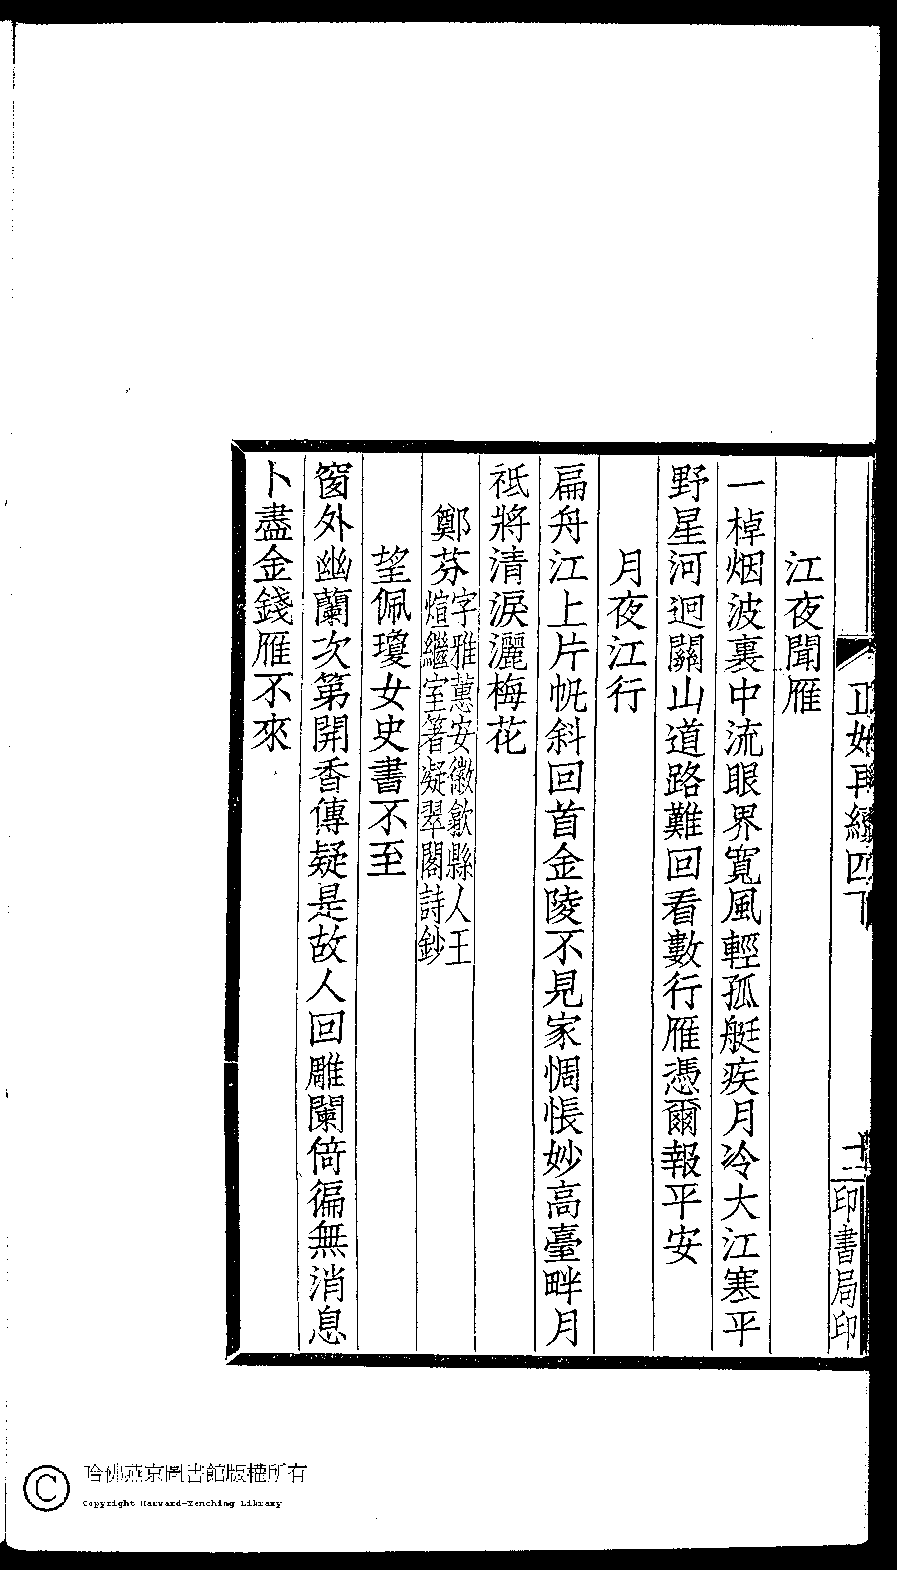 江夜聞雁
一棹烟波裏中流眼界寬風輕孤艇疾月冷大江寒平
野星河迥關山道路難回看數行雁憑爾報平安
月夜江行
扁舟江上片帆斜回首金陵不見家惆悵妙高臺畔月
祇將清淚灑梅花
鄭芬字雅蕙安徽歙縣人王
煊繼室箸凝翠閣詩鈔
望佩瓊女史書不至
窗外幽蘭次第開香傳疑是故人回雕闌倚徧無消息
卜盡金錢雁不來
正始再續四下
十二
印書局印
哈佛燕京圖書館版權所有
Copyright Harvard-Yenching Library